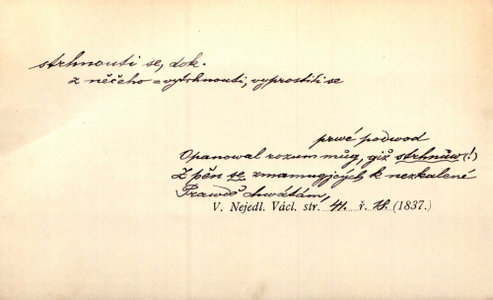 strhnouti se, dok.
z něčeho = vytrhnouti, vyprostiti se
prwé podwod
Opanowal rozum můg, giž strhnůw (!)
Z pěn se zmamugjcých k nezkalené
Prawdě chwátám,
V. Nejedl. Václ. str. 41. ř. 18. (1837.)